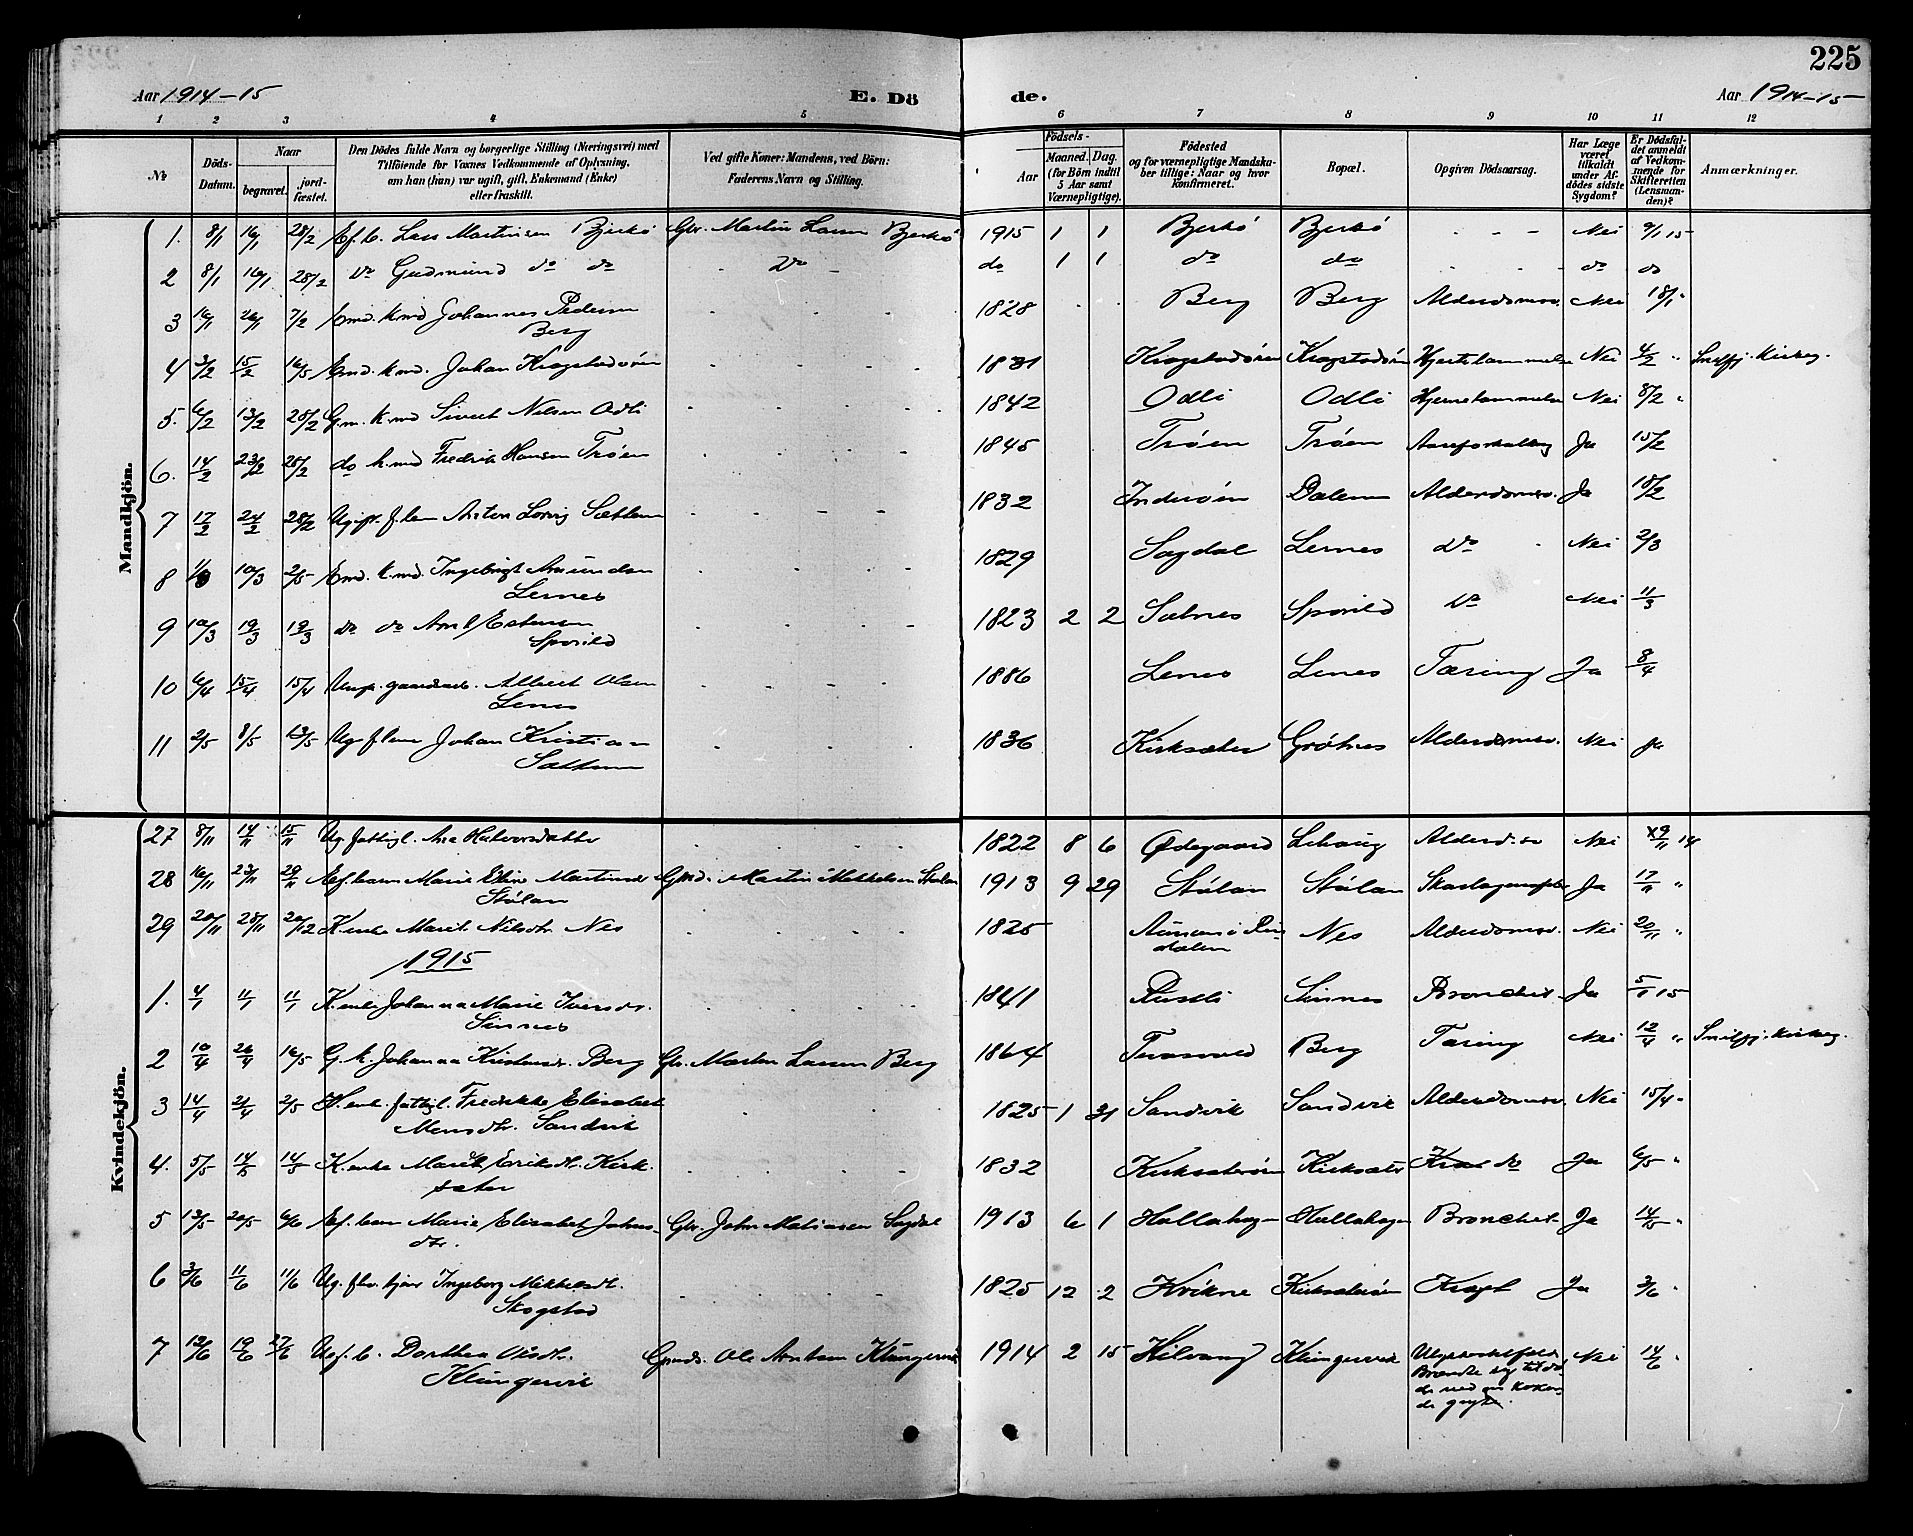 225
Aar 1914-15
E. Dö
de.
Aar 1914-15
1 2 3 4 5 6 7 8 9 10 11 12
No
Döds-Datum.
Naar
begravet.
jord-fæstet.
Den Dödes fulde Navn og borgerlige Stilling (Næringsvei) med
Tilföiende for Voxnes Vedkommende af Oplysning,
om han (hun) var ugift, gift, Enkemand (Enke)
eller fraskilt.
Ved gifte Koner: Mandens, ved Börn:
Faderens Navn og Stilling.
Födsels-
Aar
Maaned. Dag.
(for Börn indtil
5 Aar samt
Værnepligtige).
Födested
og for værnepligtige Mandska-
ber tillige: Naar og hvor
konfirmeret.
Bopæl.
Opgiven Dödsaarsag.
Har Læge
været
tilkaldt
under Af-
dödes sidste
Sygdom?
Er Dödsfal-
det anmeldt
af Vedkom-
mende for
Skifteretten
(Lensman-
den)?
Anmærkninger.
Mandkjön.
1. 8/1 16/1 28/2 Ef. b. Lars Martinsen Bjerkö Gbr. Martin Larsen Bjerkö 1915 1 1 Bjerkö Bjerkö - - - Nei 9/1 15
2 8/1 16/1 28/2 do Gudmund do do Do do 1 1 do do do do
3 16/1 26/1 7/2 Emd. k.md Johannes Pedersen 1828 Berg Berg Alderdomsv. Nei 18/1 "
Berg
4 3/2 15/2 16/5 Emd. k.md. Johan Krogstadøren 1831 Krogstadøren Krogstadøren Hjertelammelse Nei 4/2 " Snilfj. Kirkeg.
5. 6/2 13/2 28/2 G.m. k.md Sivert Nilsen Odli 1842 Odli Odli Hjernelammelse Nei 8/2 "
6. 14/2 23/2 28/2 do k.md Fredrik Hansen Trøen 1845 Trøen Trøen Aareforkalkning Ja 15/2
7 17/2 24/2 28/2 Ugift. f. lem Anton Sættem 1832 Indsøien Dalem Alderdomsv. Ja 18/2
8 1/3 10/3 2/5 Emd. k.md. Ingebrigt Amundsen 1829 Sagdal Lernes do Nei 2/3
Lernes
9 10/3 19/3 19/3 do do Estensen 1823 2 2 Sætnes Sporild do Nei 11/3
Sporild
10 6/4 15/4 15/4 Albert Olsen 1886 Lenes Lenes Tæring Ja 8/4
Lenes
11 2/5 8/5 13/5 Ug. f. lem Johan Kristian 1836 Kirksæter Grøtnes Alderdomsv. Nei Ja
Sættem
Kvindekjön.
27 8/11 14/11 15/11 Ug. fattigl. Ane Halvorsdatter 1822 8 6 Ødegaard Alderd. sv Nei 9/11 14
28 16/11 23/11 29/11 Ef. barn Marie Eline Martinsd. Gmd. Martin Mikkelsen Stølan 1913 9 29 Stølan Stølan Ja 17/11 "
Stølan
29 20/11 28/11 20/12 K. enke Marit Nilsdtr. Nes 1825 i Rin- Nes Alderdomsv. Nei 20/11 "
dalen
1915
1. 4/1 11/1 11/1 K. enke Johanna Marie Iversdtr. 1841 Rustli Sinnes Bronchit. Ja 5/1 15
Sinnes
2 10/4 20/4 16/5 G. k. Johanna Kristensdtr. Berg Gbr. Morten Larsen Berg 1864 Berg Tæring Nei 12/4 " Snilfj. Kirkeg.
3 14/4 21/4 2/5 K. enk. fattigl. Fredrikke Elisabet 1825 1 31 Sandvik Sandvik Alderdomsv. Nei 15/4 "
Monsdtr. Sandvik
4. 5/5 14/5 14/5 K. enke Marit Eriksdtr. Kirk- 1832 Kirksæterøren Kirksæter do Ja 6/5 "
sæter
5 13/5 20/5 6/6 Ef. barn Marie Elisabet Johns- Gbr. John Matiasen Sagdal 1913 6 1 Hallahagen Hallahagen Bronchit. Ja 14/5 "
dtr.
6 3/6 11/6 11/6 Ug. fhv. tjen. Ingeborg Mikkelsdtr. 1825 12 2 Kvikne Kirksæterøren Kræft Ja 3/6 "
Skogstad
7 12/6 19/6 27/6 Uef. b. Dorthea Olsdtr. Gmds. Ole Arntsen Klungervik 1914 2 15 Hilvang Klungervik Ulykkestilfælde Nei 14/6
Klungervik Brændte sig tildø-
de ved en koken-
de gryte.